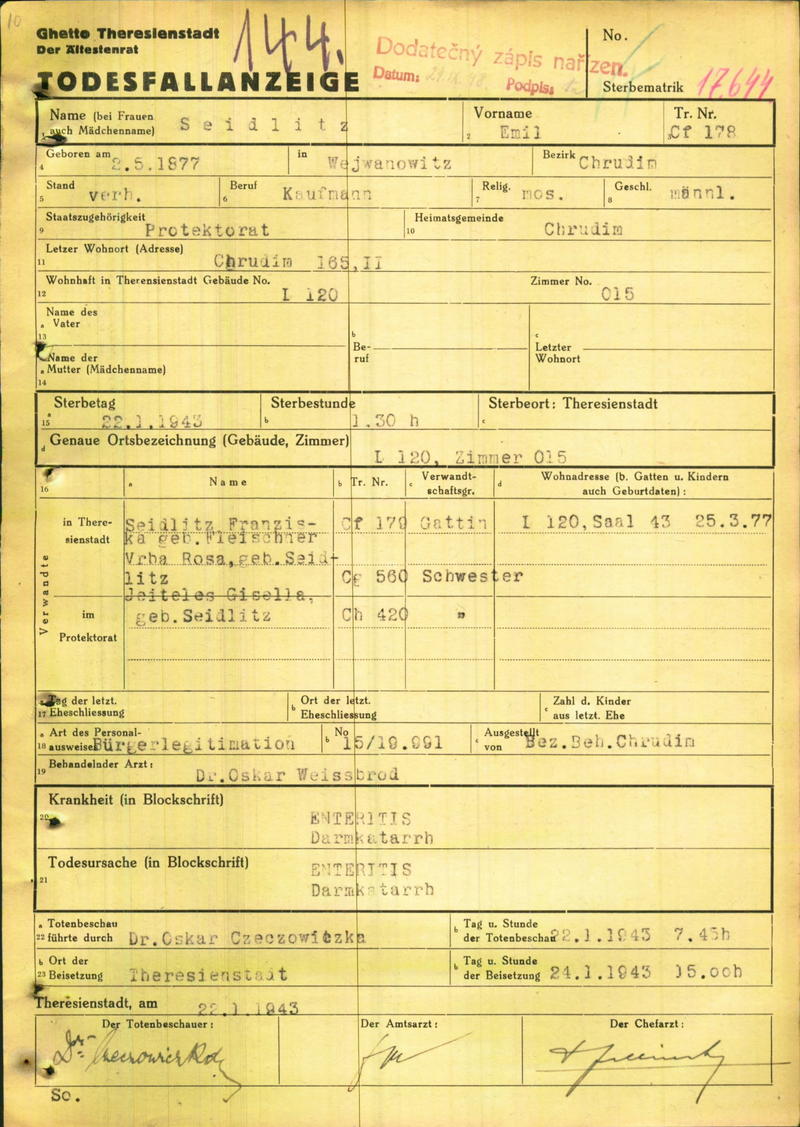 10
Ghetto Theresienstadt
Der Ältestenrat
144.
TODESFALLANZEIGE
Dodatečný zápis nařízen.
Datum:
Podpis:
No.
Sterbematrik 17.644
Name (bei Frauen auch Mädchenname) Seidlitz
Vorname
2 Emil
Tr. Nr.
3 Cf 178
Geboren am
4 2.5.1877
in Wejwanowitz
Bezirk Chrudim
Stand
5 verh.
Beruf
6 Kaufmann
Relig.
7 mos.
Geschl.
8 männl.
Staatszugehörigkeit
9 Protektorat
Heimatsgemeinde
10 Chrudim
Letzer Wohnort (Adresse)
11 Chrudim 165,II
Wohnhaft in Therensienstadt Gebäude No.
12 L 120
Zimmer No.
015
Name des
a Vater
13
b
Be-
ruf
c
Letzter
Wohnort
Name der
a Mutter (Mädchenname)
14
Sterbetag
a
15 22.1.1943
Sterbestunde
b 1.30 h
Sterbeort: Theresienstadt
c
d Genaue Ortsbezeichnung (Gebäude, Zimmer)
L 120, Zimmer 015
16
a Name
b Tr. Nr.
c Verwandt-
schaftsgr.
d Wohnadresse (b. Gatten u. Kindern
auch Geburtdaten):
Verwandte
in There-
sienstadt
Seidlitz Franzis- Cf 179 Gattin L 120,Saal 43 25.3.77
ka geb.Fleischner
Vrba Rosa,geb.Seid-
litz Cg 560 Schwester
Jeiteles Gisella,
im
Protektorat
geb.Seidlitz Ch 420 "
Tag der letzt.
17 Eheschliessung
b Ort der letzt.
Eheschliessung
c Zahl d. Kinder
aus letzt. Ehe
a Art des Personal-
18 ausweises Bürgerlegitimation
b No 15/19.991
c Ausgestellt
von Bez.Beh.Chrudim
Behandelnder Arzt:
19 Dr.Oskar Weissbrod
Krankheit (in Blockschrift)
20
ENTERITIS
Darmkatarrh
Todesursache (in Blockschrift)
21
ENTERITIS
Darmkatarrh
a Totenbeschau
22 führte durch Dr.Oskar Czeczowitzka
b Tag u. Stunde
der Totenbeschau 22.1.1943 7.45h
b Ort der
23 Beisetzung Theresienstadt
b Tag u. Stunde
der Beisetzung 24.1.1943 15.ooh
Theresienstadt, am 22.1.1943
Der Totenbeschauer:
Der Amtsarzt:
Der Chefarzt:
Sc.